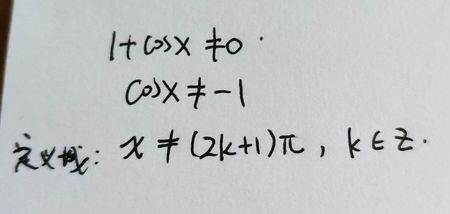 1+cosx≠0.
cosx≠-1
定义域: x≠(2k+1)π, k∈Z.